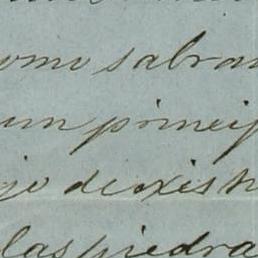 omo sabran
un princip
jo de exist
las piedra